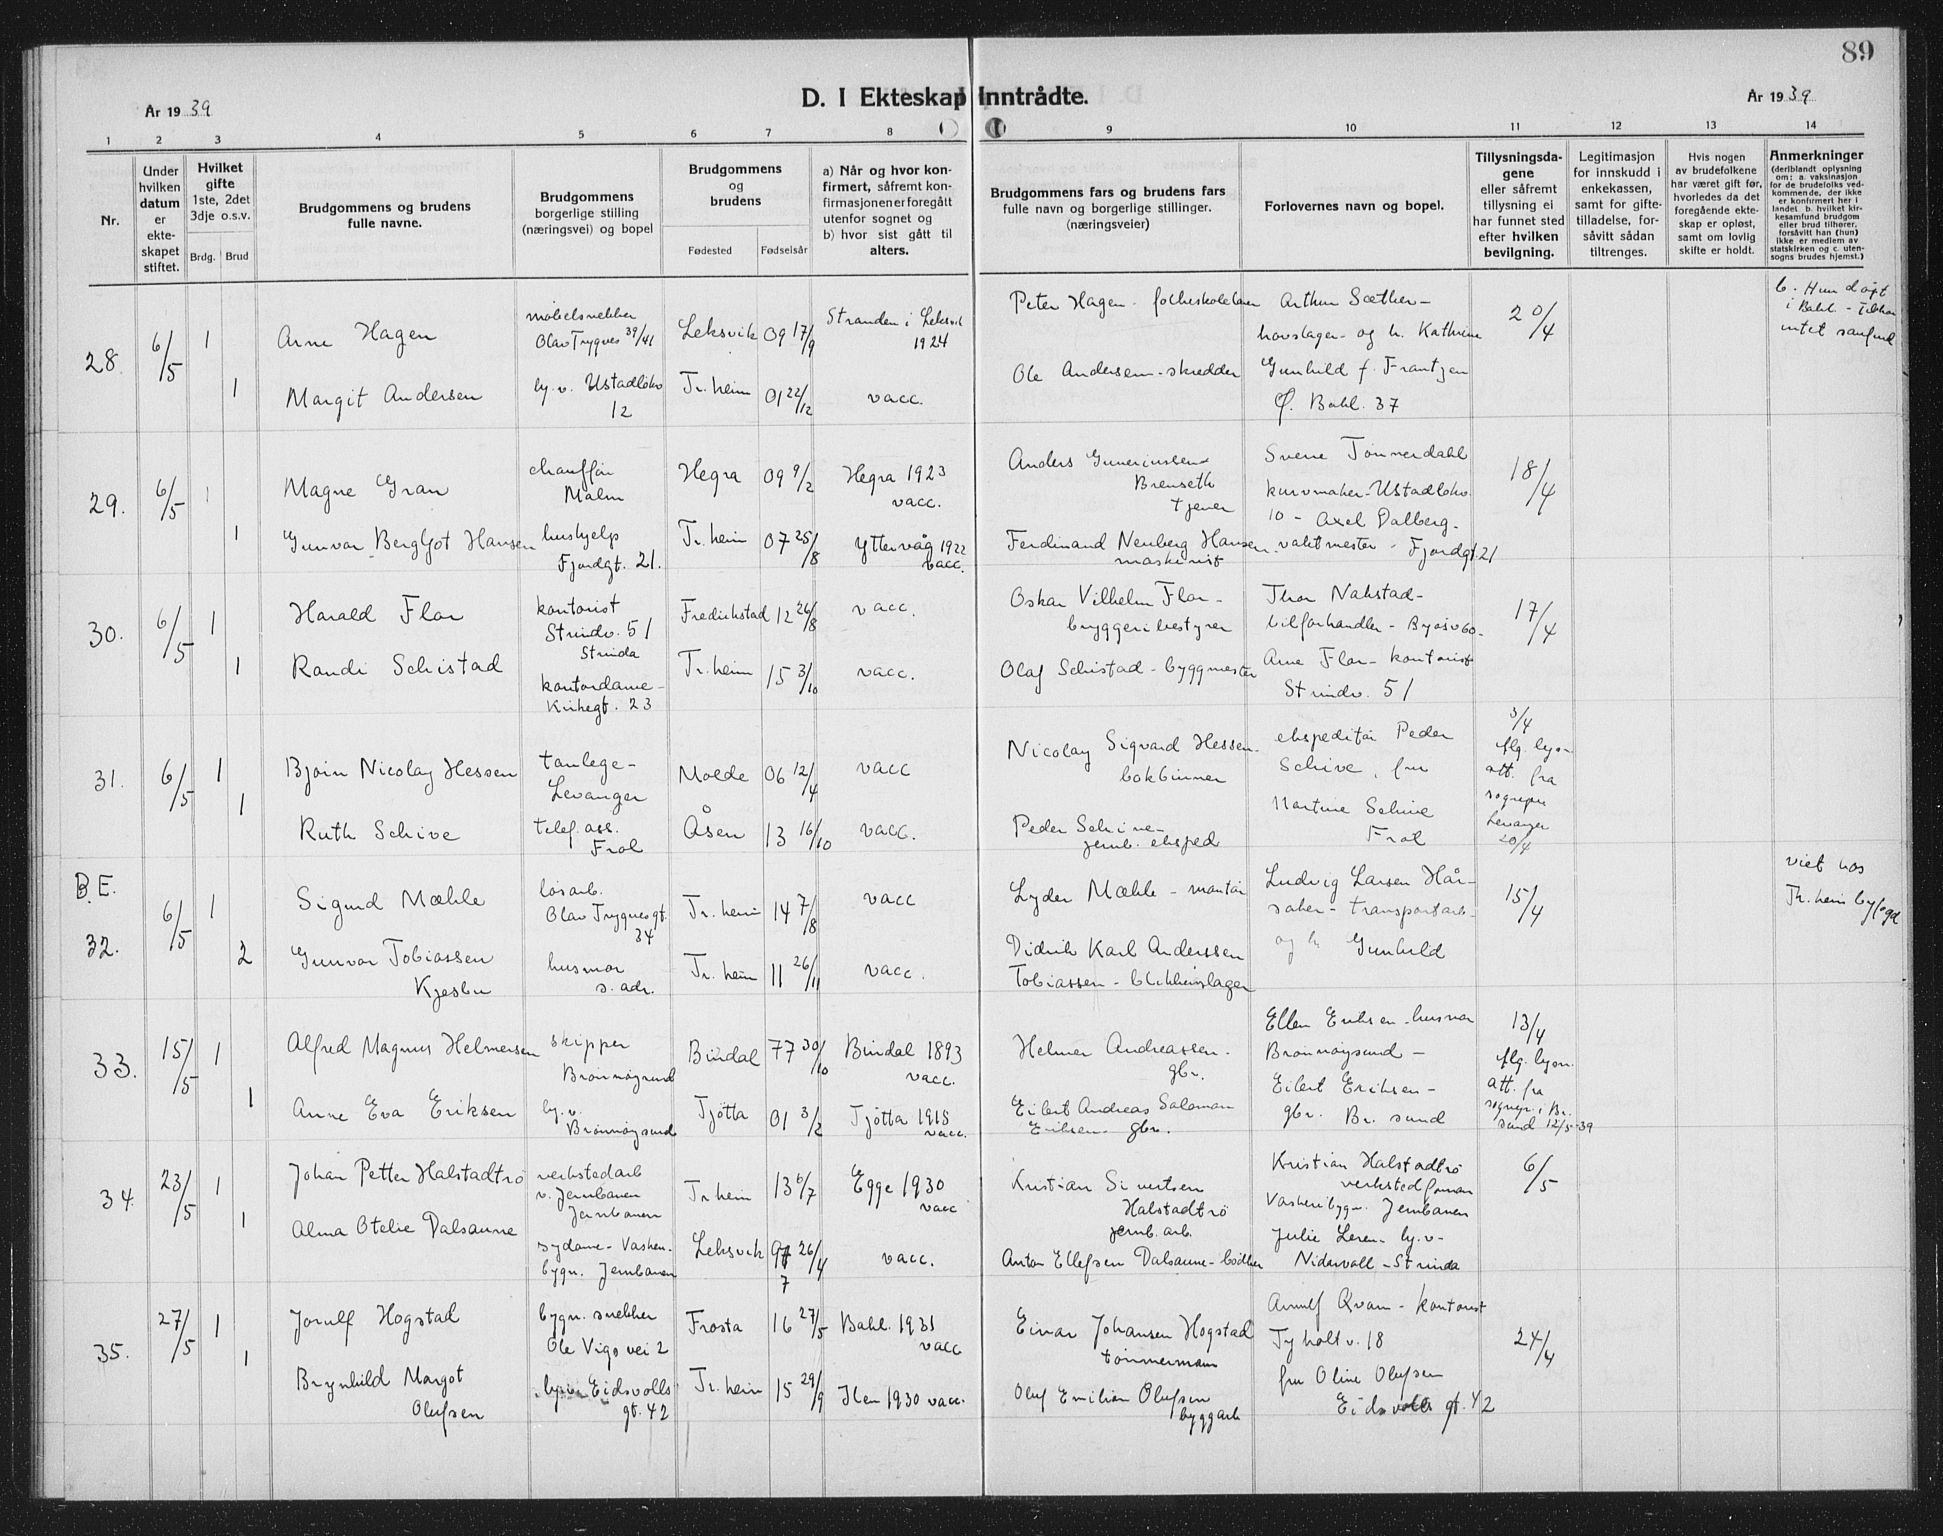 89
D. I Ekteskap Inntrådte.
År 19 39
År 19 39
1 2 3 4 5 6 7 8 9 10 11 12 13 14
Nr.
Under hvilken datum er ekteskapet stiftet.
Hvilket gifte 1ste, 2det 3dje o.s.v.
Brdg. Brud
Brudgommens og brudens fulle navne.
Brudgommens borgerlige stilling (næringsvei) og bopel
Brudgommens og brudens
Fødested Fødselsår
a) Når og hvor konfirmert, såfremt konfirmasjonen er foregått utenfor sognet og b) hvor sist gått til alters.
Brudgommens fars og brudens fars fulle navn og borgerlige stillinger. (næringsveier)
Forlovernes navn og bopel.
Tillysningsdagene eller såfremt tillysning ei har funnet sted efter hvilken bevilgning.
Legitimasjon for innskudd i enkekassen, samt for giftetilladelse, forsåvitt sådan tiltrenges.
Hvis nogen av brudefolkene har været gift før, hvorledes da det foregående ekteskap er opløst, samt om lovlig skifte er holdt.
Anmerkninger (deriblandt oplysning om: a. vaksinasjon for de brudefolks vedkommende, der ikke er konfirmert her i landet. b. hvilket kirkesamfund brudgom eller brud tilhører, forsåvitt han (hun) ikke er medlem av statskirken og c. utensogns brudes hjemst.)
28. 6/5 1 Arne Hagen møbelsnekker Olav Trygves 39/41 Leksvik 09 17/9 Stranden i Leksvik 1924 Peter Hagen - folkeskolelærer Arthur Sæther - hovslager og h. Kathrine 20/4 b. Hun døpt i Bakl. - Tilhør intet samfund
1 Margit Andersen by. v. Ustadløkv 12 Tr.heim 01 22/12 vacc. Ole Andersen - skredder Gunhild f. Frantzen Ø. Bakl. 37
29. 6/5 1 Magne Gran chauffør Malm Hegra 09 9/2 Hegra 1923 vacc. Anders Gunerius Brenseth tjener Sverre Tønnerdahl kurvmaker - Ustadløkv. 10 - Axel Dalberg - 18/4
1 Gunvor Bergljot Hansen hushjelp Fjordgt. 21. Tr.heim 07 25/8 Yttervåg 1922 vacc. Ferdinand Neuberg Hansen maskinist vaktmester - Fjordgt 21
30. 6/5 1 Harald Flor kontorist Strindv. 51 Strinda Fredrikstad 12 26/8 vacc. Oskar Vilhelm Flor - bryggeribestyrer Thor Nakstad - bilforhandler - Byåsv 60 - 17/4
1 Randi Schistad kontordame - Kirkegt. 23 Tr.heim 15 3/10 vacc. Olaf Schistad - byggmester Arne Flor - kontorist Strindv. 51
31. 6/5 1 Bjørn Nicolay Hessen tanlege - Levanger Molde 06 12/4 vacc Nicolay Sigvard Hessen - bokbinner ekspeditør Peder Schive, fru 3/4 flg. lysn - att. fra sognepr Levanger 20/4
1 Ruth Schive telef. ass. Frol Åsen 13 16/10 vacc. Peder Schive - jernb. eksped Martine Schive Frol
B.E. 32. 6/5 1 Sigurd Mæhle løsarb. Olav Trygvesgt. 34 Tr.heim 14 7/8 vacc Lyder Mæhle - montør Ludvig Larsen Hårsaker - transportarb - 15/4 viet hos Tr.heim byfogd
2 Gunvor Tobiassen Kjesbu husmor s. adr. Tr.heim 11 26/11 vacc. Didrik Karl Anderssen Tobiassen - blikkenslager og h Gunhild
33. 15/5 1 Alfred Magnus Helmersen skipper Brønnøysund Bindal 77 30/10 Bindal 1893 vacc. Helmer Andreassen - gbr. Ellen Eriksen - husmor Brønnøysund - 13/4 flg. lysn. att. fra sognepr. i Br.sund 12/5-39
1 Anne Eva Eriksen by. v. Brønnøysund Tjøtta 01 3/2 Tjøtta 1915 vacc. Eilert Andreas Salomon Eriksen gbr. Eilert Eriksen - gbr. Br. sund
34. 23/5 1 Johan Petter Halstadtrø verkstedarb v. Jernbanen Jernbanen Tr.heim 13 6/7 Egge 1930 vacc Kristian Sivertsen Halstadtrø jernb. arb. Kristian Halstadtrø verkstedforman Vaskeribygn. Jernbanen 6/5
1 Alma Otelie Dalsaune sydame - Vaskeribygn. Jernbanen Leksvik 97 26/4 7 vacc. Anton Ellefsen Dalsaune - bødker Julie Leren - by. v - Nidarvoll - Strinda
35. 27/5 1 Jorulf Hogstad bygn. snekker Ole Vigs vei 2 Frosta 16 27/5 Bakl. 1931 vacc Einar Johansen Hogstad tømmermann Arnulf Qvam - kontorist Tyholt v. 18 24/4
1 Brynhild Margot Olufsen Eidsvolls gt. 42 Tr.heim 15 29/9 Ilen 1930 vacc. Oluf Emilian Olufsen byggarb fru Oline Olufsen Eidsvolls gt. 42